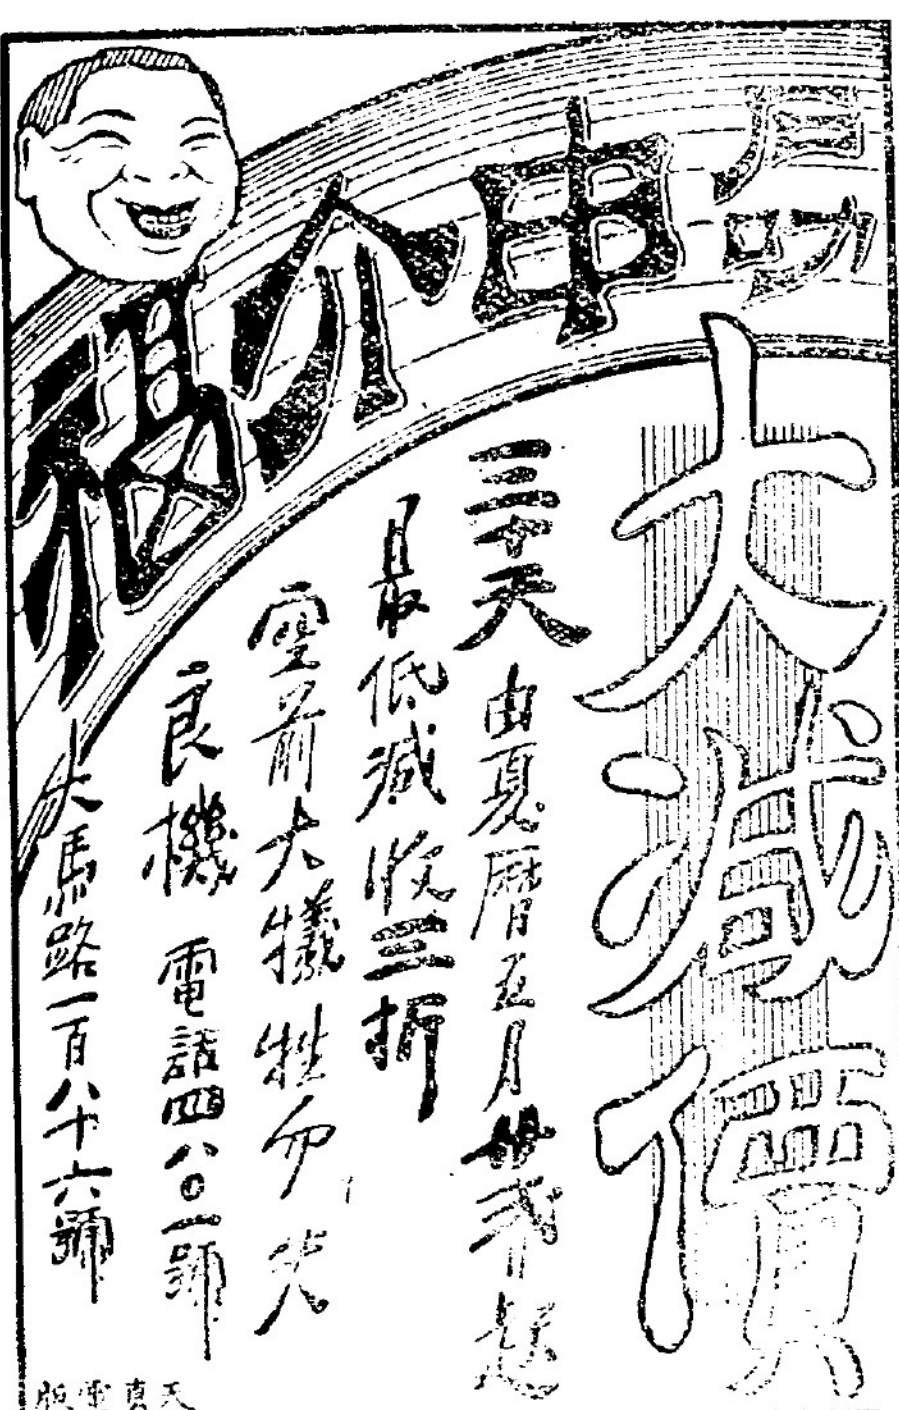 申介福
大減價
三十天 由夏曆五月廿弍日起
最低減收三折
空前大犧牲勿失
良機 電話四八〇一號
大馬路一百八十六號
天真電版